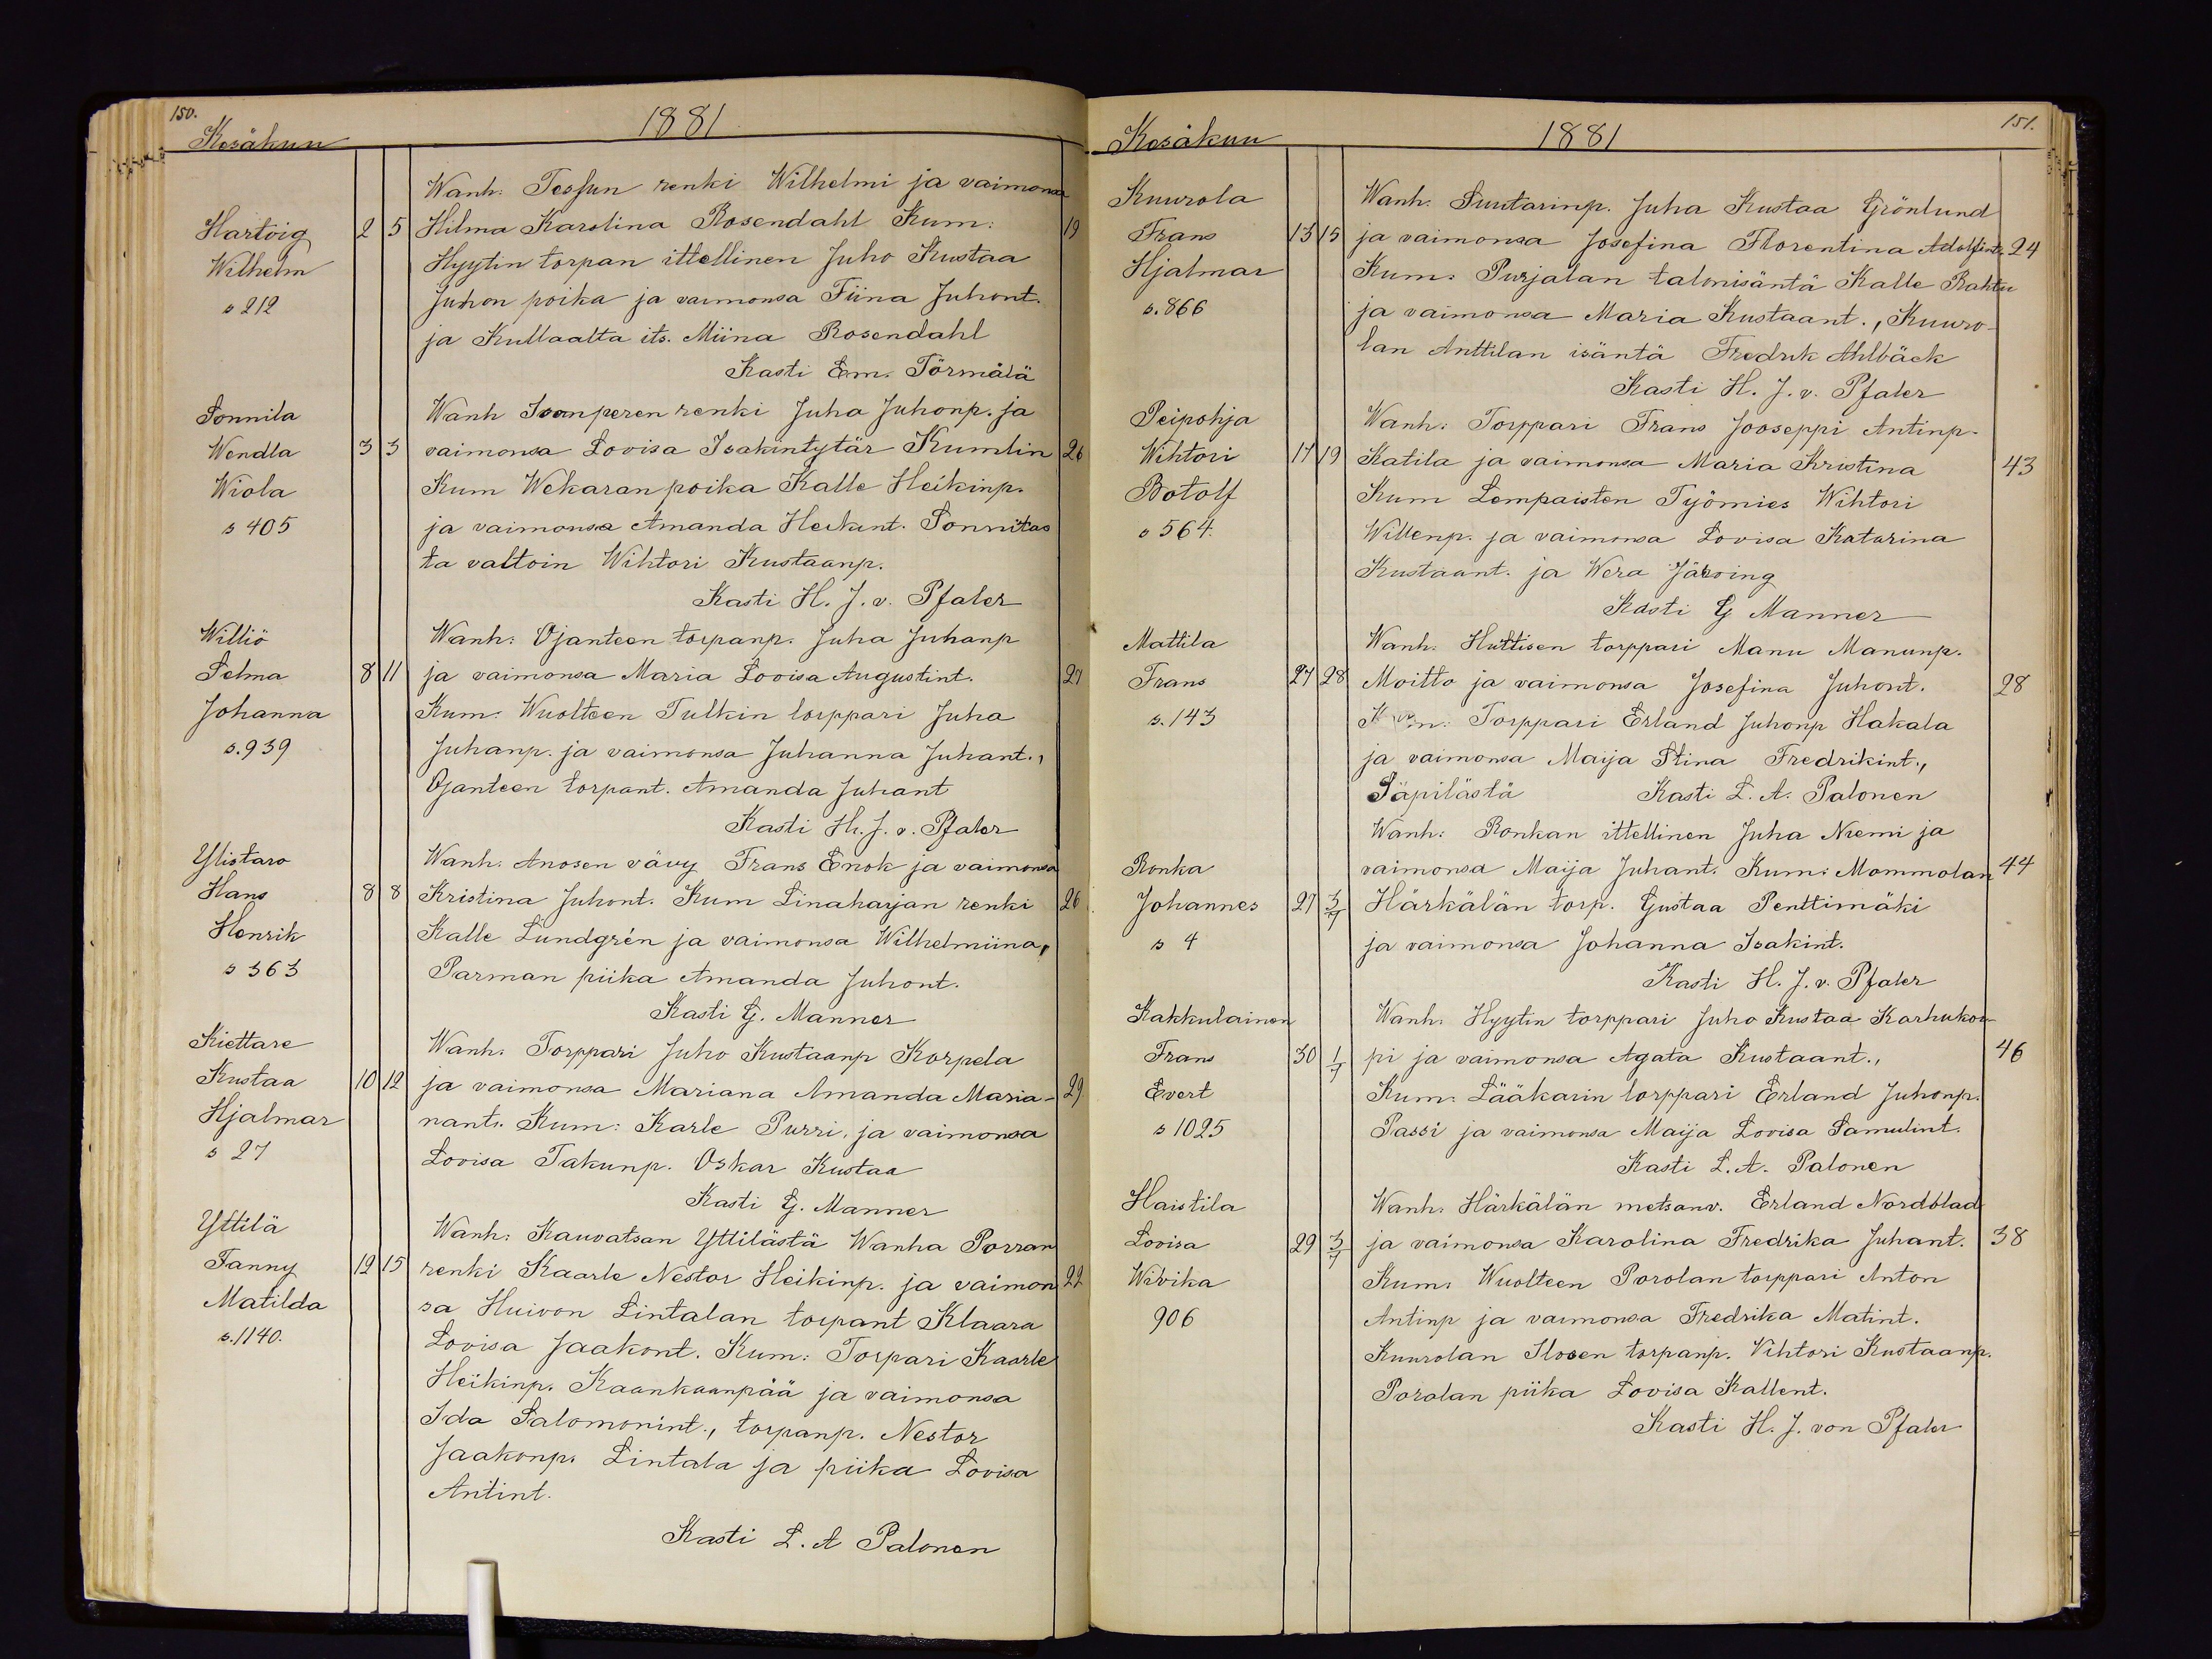 150.
Kesäkuu 1881
Wanh. Tessun renki Wilhelmi ja vaimonsa
Hartvig 2 5 Hilma Karolina Rosendahl Kum: 19
Wilhelm Hyytin torpan ittellinen Juho Kustaa
s 212 Juhon poika ja vaimonsa Tiina Juhont.
ja Kullaalta its. Miina Rosendahl
Kasti Em. Törmälä
Sonnila Wanh Isonperen renki Juha Juhonp. ja
Wendla 3 3 vaimonsa Lovisa Isakintytär Kumlin 26
Wiola Kum Wekaran poika Kalle Heikinp.
s 405 ja vaimonsa Amanda Heikint. Sonnilas
ta valtoin Wihtori Kustaanp.
Kasti H. J. v. Pfaler
Williö Wanh: Ojanteen torpanp. Juha Juhanp
Selma 8 11 ja vaimonsa Maria Lovisa Augustint. 27
Johanna Kum: Wuolteen Tulkin torppari Juha
s. 939 Juhanp. ja vaimonsa Juhanna Juhant.,
Ojanteen torpant. Amanda Juhant
Kasti H. J. v. Pfaler
Ylistaro Wanh. Anosen vävy Frans Enok ja vaimonsa
Hans 8 8 Kristina Juhont. Kum Linaharjan renki 26
Henrik Kalle Lundgrén ja vaimonsa Wilhelmiina,
s 363 Parman piika Amanda Juhont.
Kasti G. Manner
Kiettare Wanh. Torppari Juho Kustaanp Korpela
Kustaa 10 12 ja vaimonsa Mariana Amanda Maria- 29
Hjalmar nant. Kum: Karle Purri, ja vaimonsa
s 27 Lovisa Takunp. Oskar Kustaa
Kasti G. Manner
Yttilä Wanh: Kauvatsan Yttilästä Wanha Porran
Fanny 12 15 renki Kaarle Nestor Heikinp. ja vaimon 22
Matilda sa Huivon Lintalan torpant Klaara
s. 1140. Lovisa Jaakont. Kum: Torpari Kaarle
Heikinp. Kaankaanpää ja vaimonsa
Ida Salomonint., torpanp. Nestor
Jaakonp. Lintala ja piika Lovisa
Antint.
Kasti L. A Palonen
151.
Kesäkuu 1881
Kuurola Wanh. Suutarinp. Juha Kustaa Grönlund
Frans 13 15 ja vaimonsa Josefina Florentina Adolfint. 24
Hjalmar Kum: Purjalan talonisäntä Kalle Rahtu
s. 866 ja vaimonsa Maria Kustaant., Kuuro-
lan Anttilan isäntä Fredrik Ahlbäck
Kasti H. J. v. Pfaler
Peipohja Wanh: Torppari Frans Jooseppi Antinp.
Wihtori 17 19 Katila ja vaimonsa Maria Kristina 43
Botolf Kum Lempaisten Työmies Wihtori
s 564. Willenp. ja vaimonsa Lovisa Katarina
Kustaant. ja Wera
Kasti G Manner
Mattila Wanh. Huttisen torppari Manu Manunp.
Frans 27 28 Moitto ja vaimonsa Josefina Juhont. 28
s. 143 Kum: Torppari Erland Juhonp Hakala
ja vaimonsa Maija Stina Fredrikint.,
Säpilästä Kasti L. A. Palonen
Wanh: Ronkan ittellinen Juha Niemi ja
Ronka vaimonsa Maija Juhant. Kum: Mommolan 44
Johannes 27 3/7 Härkälän torp. Gustaa Penttimäki
s 4 ja vaimonsa Johanna Isakint.
Kasti H. J. v. Pfaler
Kakkulainen Wanh. Hyytin torppari Juho Kustaa Karhukor-
Frans 30 1/7 pi ja vaimonsa Agata Kustaant., 46
Evert Kum: Lääkarin torppari Erland Juhonp.
s 1025 Passi ja vaimonsa Maija Lovisa Samulint.
Kasti L. A. Palonen
Haistila Wanh. Härkälän metsanv. Erland Nordblad
Lovisa 29 3/7 ja vaimonsa Karolina Fredrika Juhant. 38
Wivika Kum: Wuolteen Porolan torppari Anton
906 Antinp ja vaimonsa Fredrika Matint.
Kuurolan Ilosen torpanp. Vihtori Kustaanp.
Porolan piika Lovisa Kallent.
Kasti H. J. von Pfaler